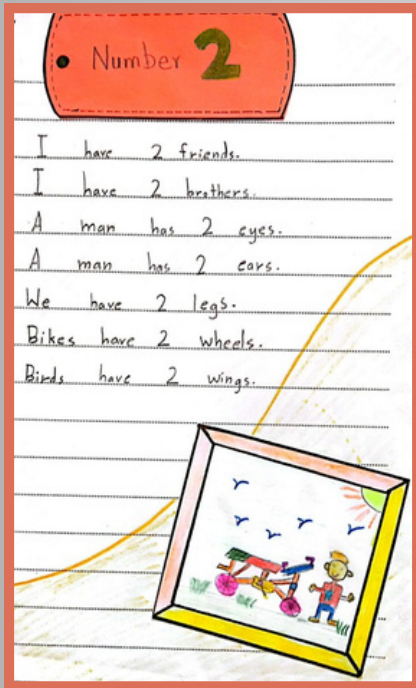 Number 2
I have 2 friends.
I have 2 brothers.
A man has 2 eyes.
A man has 2 ears.
We have 2 legs.
Bikes have 2 wheels.
Birds have 2 wings.